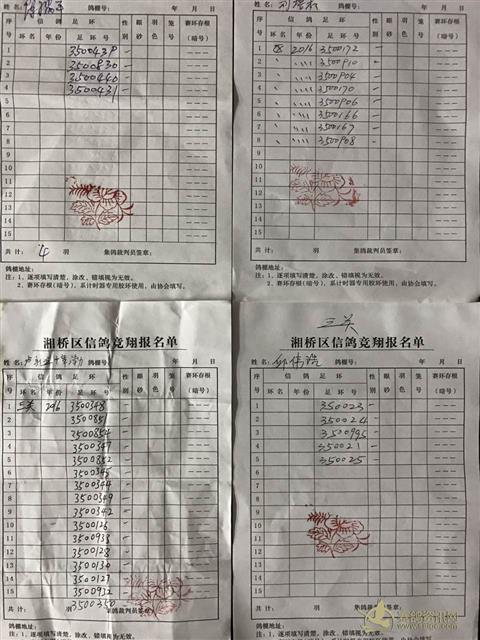 姓名： 鸽棚号： 年 月 日
序号 信鸽足环 性别 眼砂 羽色 笼号 赛环存根（暗号）
环名 年份 足环号
1 3500439 一
2 3500830 一
3 3500440 一
4 3500431 一
5
6
7
8
9
10
11
12
13
14
15
共计： 4 羽 集鸽裁判员签章：
鸽棚地址：
注：1、逐项填写清楚，涂改、错填视为无效。
2、赛环存根（暗号），系计时器专用胶环使用，由协会填写。
姓名： 鸽棚号： 年 月 日
序号 信鸽足环 性别 眼砂 羽色 笼号 赛环存根（暗号）
环名 年份 足环号
1 2016 3500172 一
2 3500910 一
3 3500904 一
4 3500170 一
5 3500906 一
6 3500166 一
7 3500167 一
8 3500908 一
9
10
11
12
13
14
15
共计： 羽 集鸽裁判员签章：
鸽棚地址：
注：1、逐项填写清楚，涂改、错填视为无效。
2、赛环存根（暗号），系计时器专用胶环使用，由协会填写。
湘桥区信鸽竞翔报名单
姓名： 鸽棚号： 年 月 日
序号 信鸽足环 性别 眼砂 羽色 笼号 赛环存根（暗号）
环名 年份 足环号
1 三关 2016 3500348 一
2 350085
3 3500854
4 3500347
5 3500852
6 3500345
7 3500344
8 3500349
9 3500342
10 3500126
11 3500938
12 3500128
13 3500130
14 3500127
15 3500932
3500350
共计： 羽 集鸽裁判员签章：
鸽棚地址：
注：1、逐项填写清楚，涂改、错填视为无效。
三关
湘桥区信鸽竞翔报名单
姓名： 邱伟浩 鸽棚号： 年 月 日
序号 信鸽足环 性别 眼砂 羽色 笼号 赛环存根（暗号）
环名 年份 足环号
1 350023 一
2 350024 一
3 3500995 一
4 350021 一
5 350025 一
6
7
8
9
10
11
12
13
14
15
共计： 羽 集鸽裁判员签章：
鸽棚地址：
注：1、逐项填写清楚，涂改、错填视为无效。
赛鸽资讯网